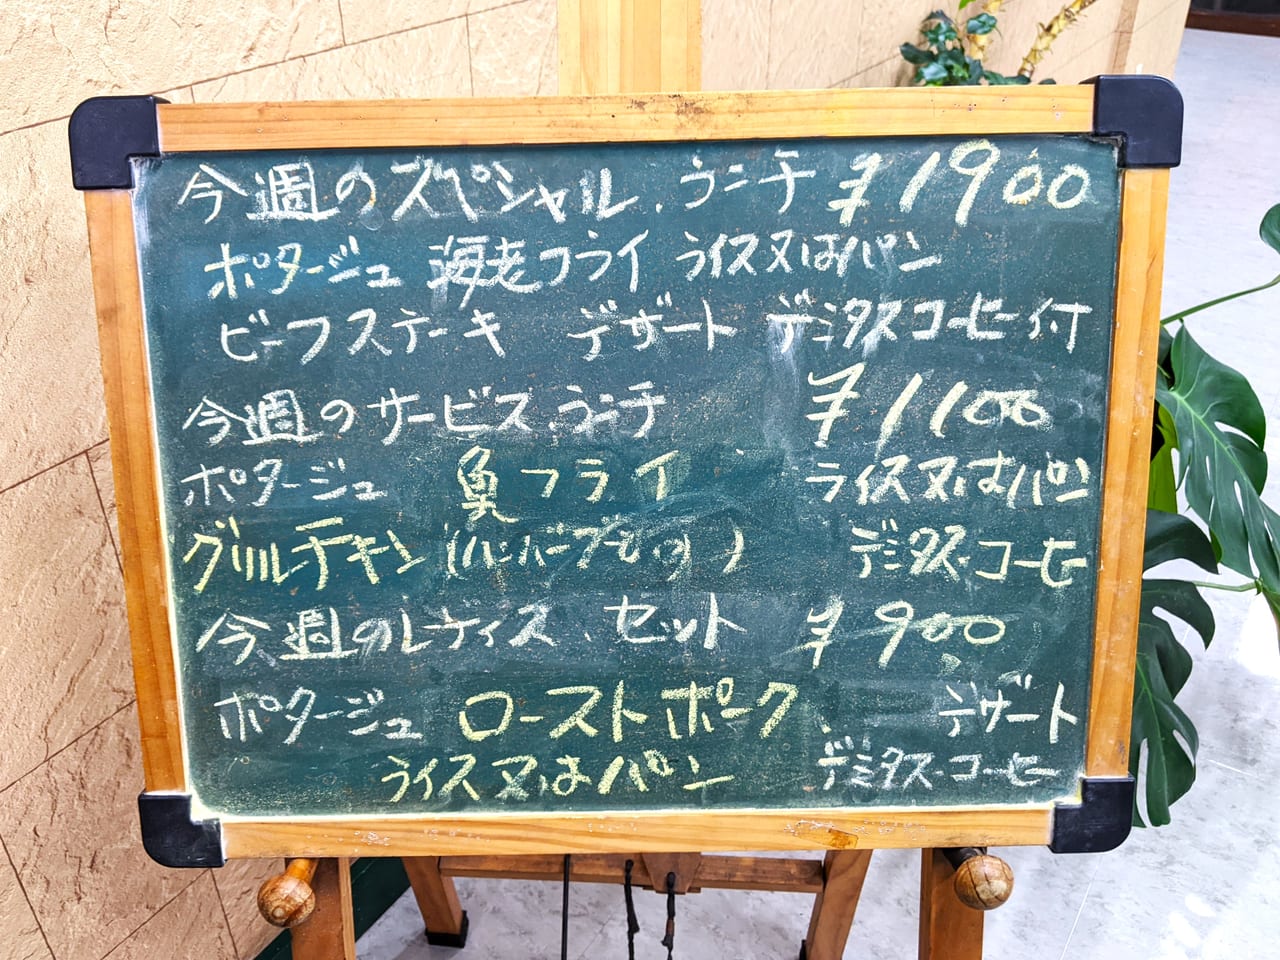 今週のスペシャル.ランチ ¥1900
ポタージュ 海老フライ ライス又はパン
ビーフステーキ デザート デミタスコーヒー付
今週のサービス.ランチ ¥1100
ポタージュ 魚フライ ライス又はパン
グリルチキン(ハンバーグもの) デミタスコーヒー
今週のレディス.セット ¥900
ポタージュ ローストポーク デザート
ライス又はパン デミタスコーヒー